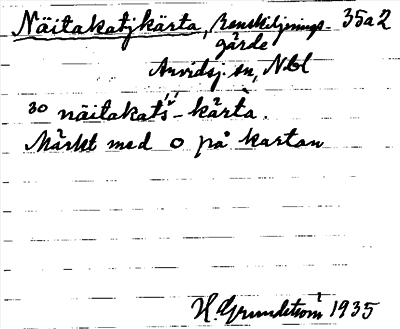 Näitakatjkärta, Renskiljnings- 35a2
gärde
Arvidsj. sn, Nbl
30 näitakat́š́-kärta.
Märket med o på kartan
H. Grundström 1935